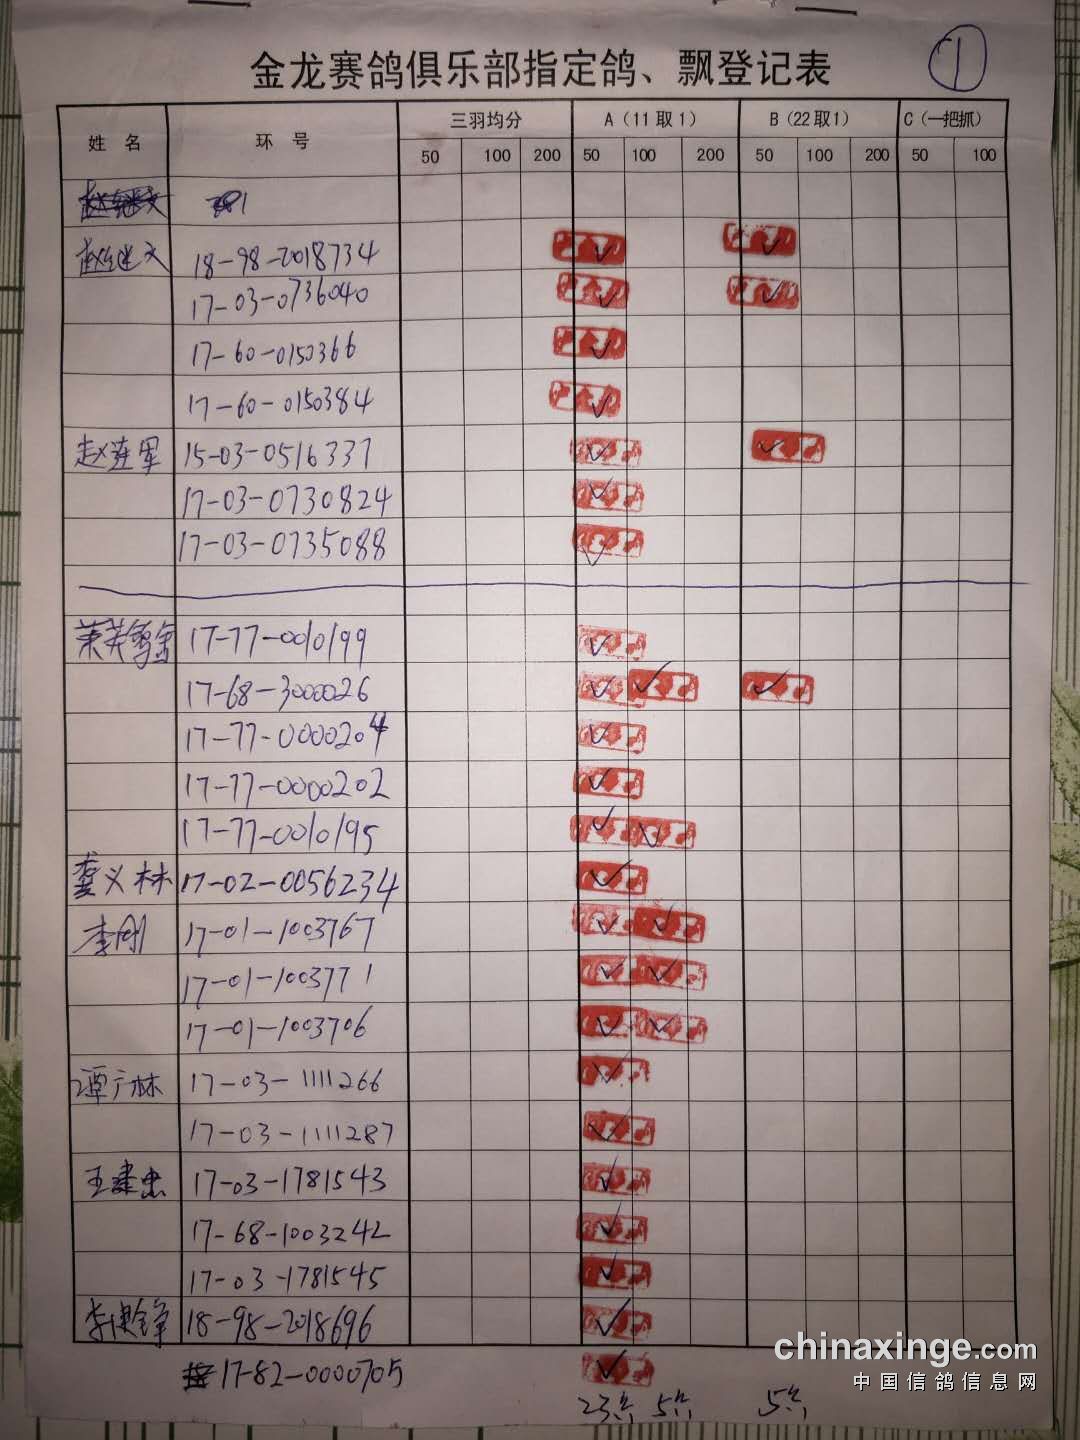 金龙赛鸽俱乐部指定鸽、飘登记表
①
姓名 环号 三羽均分 A(11取1) B(22取1) C(一把抓)
50 100 200 50 100 200 50 100 200 50 100
赵继文 18-98-2018734 ✓ ✓
17-03-0736040 ✓ ✓
17-60-0150366 ✓
17-60-0150384 ✓
赵连军 15-03-0516337 ✓ ✓
17-03-0730824 ✓
17-03-0735088 ✓
17-77-0010199 ✓
17-68-3000026 ✓ ✓ ✓
17-77-0000204 ✓
17-77-0000202 ✓
17-77-0010195 ✓ ✓
娄义林 17-02-0056234 ✓
李刚 17-01-1003767 ✓ ✓
17-01-1003771 ✓ ✓
17-01-1003706 ✓ ✓
谭广林 17-03-1111266 ✓
17-03-1111287 ✓
王建忠 17-03-1781543 ✓
17-68-1003242 ✓
17-03-1781545 ✓
18-98-2018696 ✓
17-82-0000705 ✓
23 5 5
chinaxinge.com
中国信鸽信息网